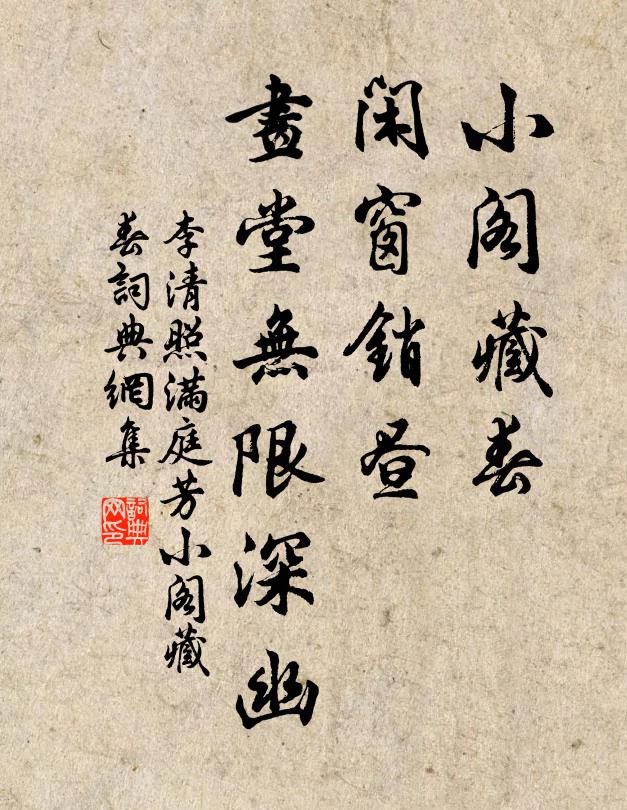 小閣藏春
閑窗銷晝
畫堂無限深幽
李清照滿庭芳小閣藏
春詞典網集
詞典网印